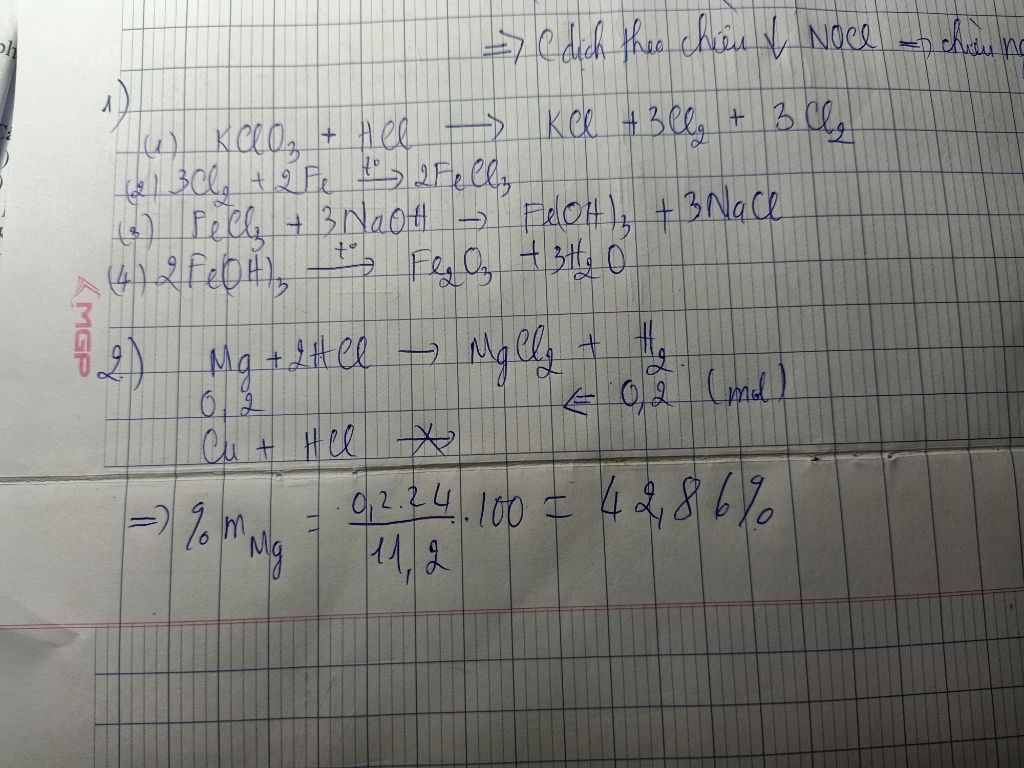 => Cdịch theo chiều ↓ NOCl => chiều
1)
(1) KClO₃ + HCl ⟶ KCl + 3Cl₂ + 3Cl₂
(2) 3Cl₂ + 2Fe t° ⟶ 2FeCl₃
(3) FeCl₃ + 3NaOH → Fe(OH)₃ + 3NaCl
(4) 2Fe(OH)₃ t° ⟶ Fe₂O₃ + 3H₂O
MGP
2) Mg + 2HCl → MgCl₂ + H₂
0,2 ⇐ 0,2 (mol)
Cu + HCl ↛
=> % m Mg = 0,2.24 / 11,2 .100 = 42,86%